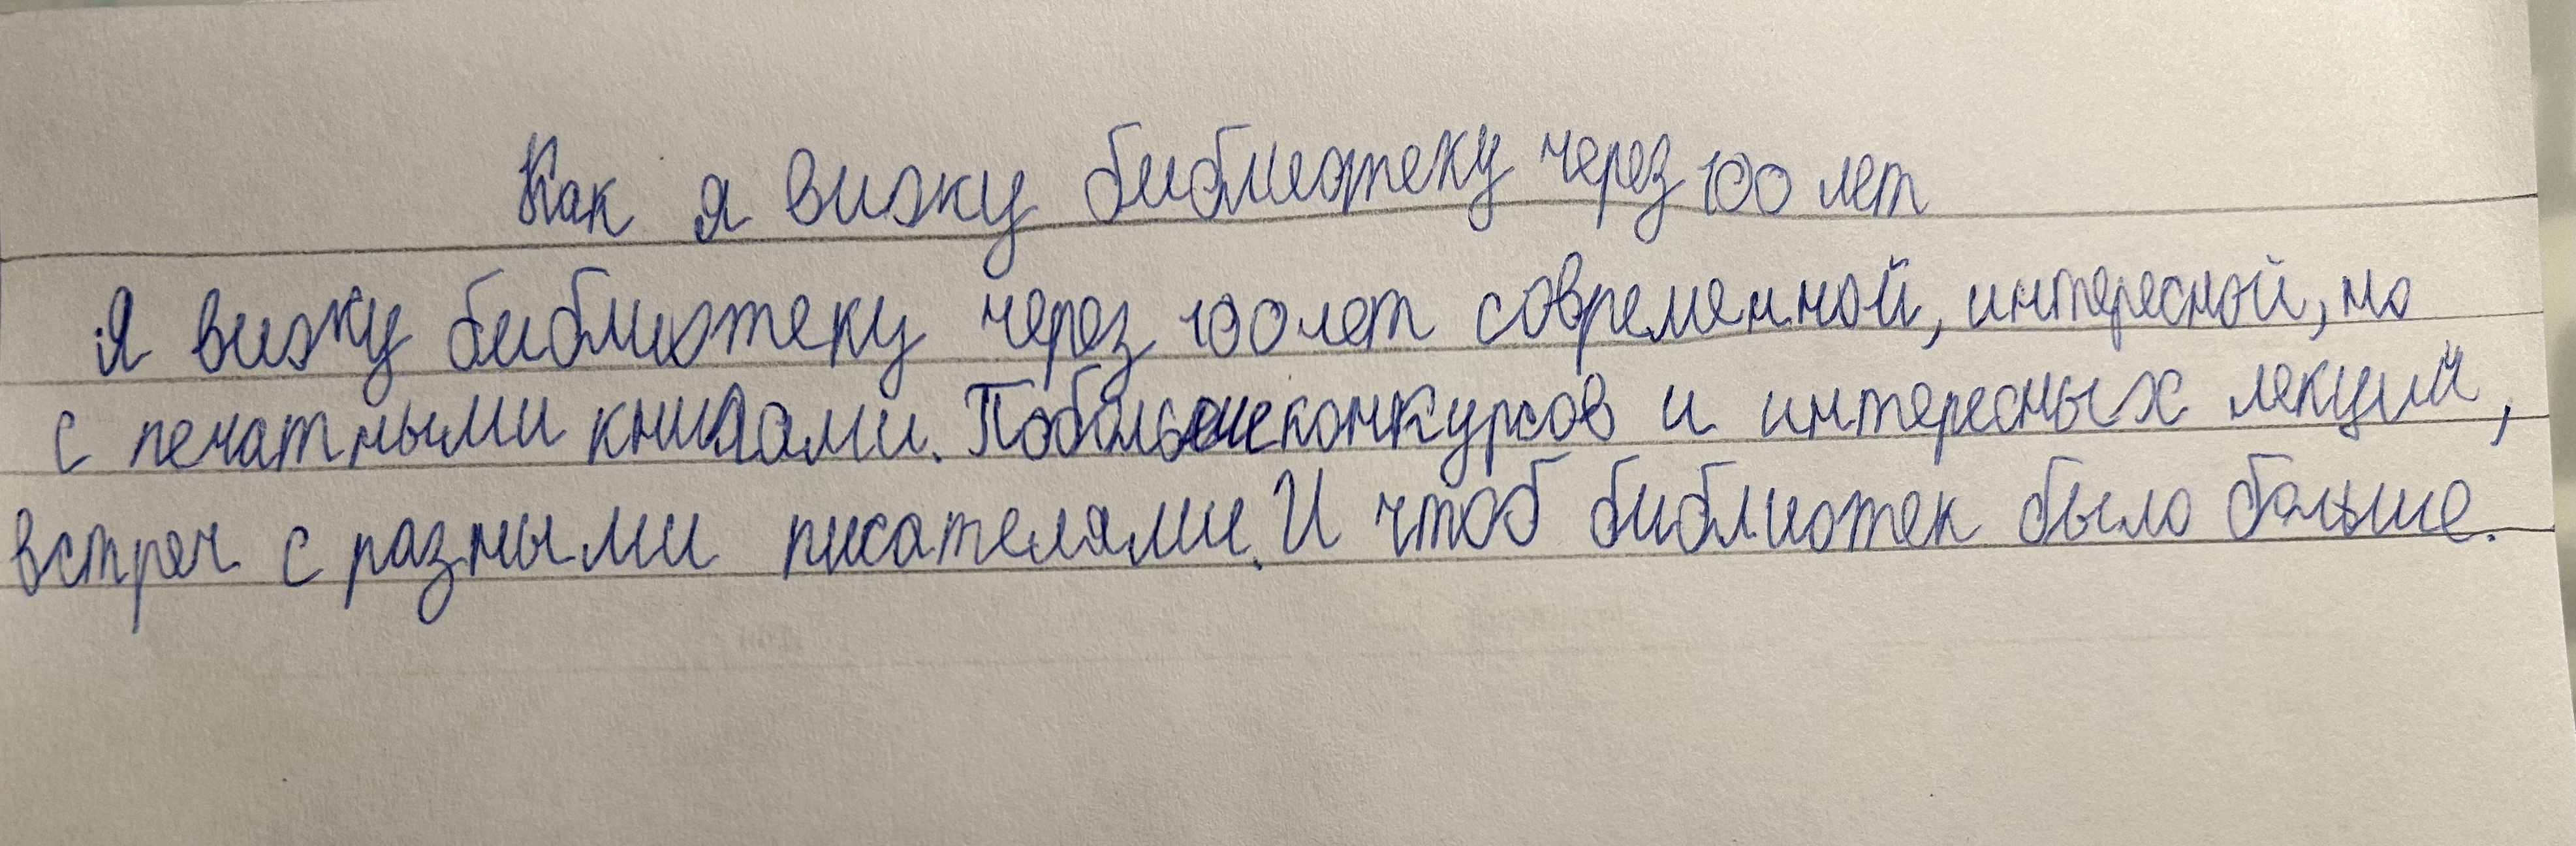 Как я вижу библиотеку через 100 лет
Я вижу библиотеку через 100 лет современной, интересной, но
с печатными книгами. Побольше конкурсов и интересных лекций,
встреч с разными писателями. И чтоб библиотек было больше.